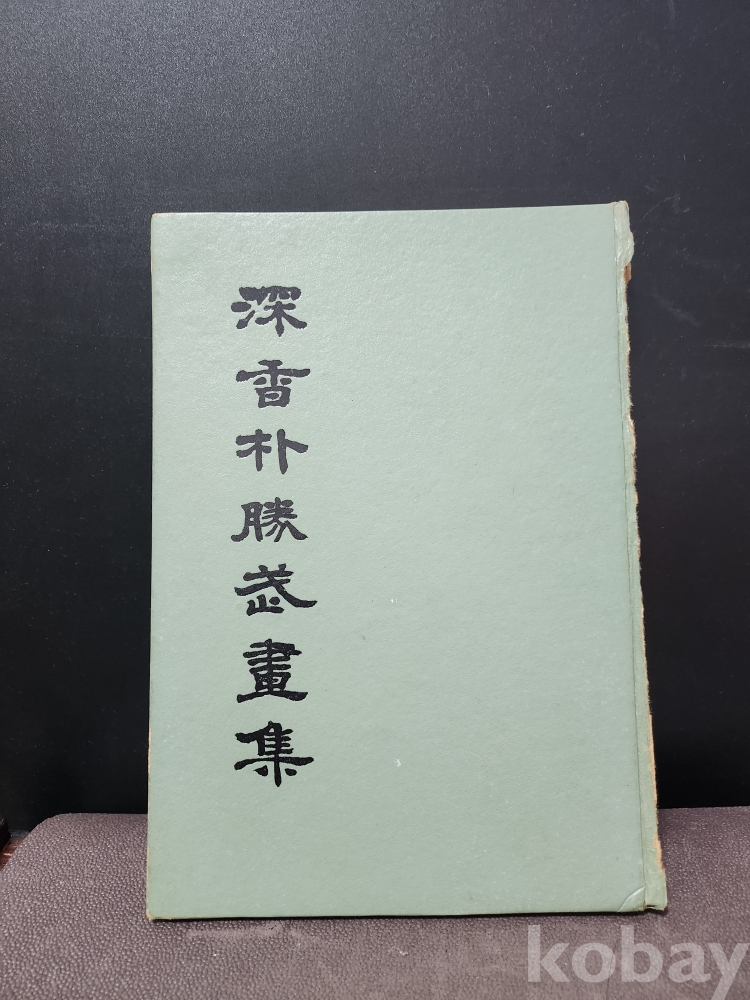 深香朴勝武畫集
kobay